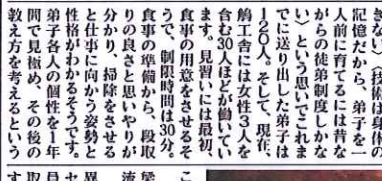 きない〈技術は身体の
記憶だから、弟子を一
人前に育てるには昔な
がらの徒弟制度しかな
い〉という思いでこれま
でに送り出した弟子は
120人。そして、現在、
鵤工舎には女性3人を
含む30人ほどが働いてい
ます。見習いには最初、
食事の用意をさせるそ
うで、制限時間は30分。
食事の準備から、段取
りの良さと思いやりが
分かり、掃除をさせる
と仕事に向かう姿勢と
性格がわかるそうです。
弟子各人の個性を1年
間で見極め、その後の
教え方を考えるという
こ
流
異
員
セ
取
す